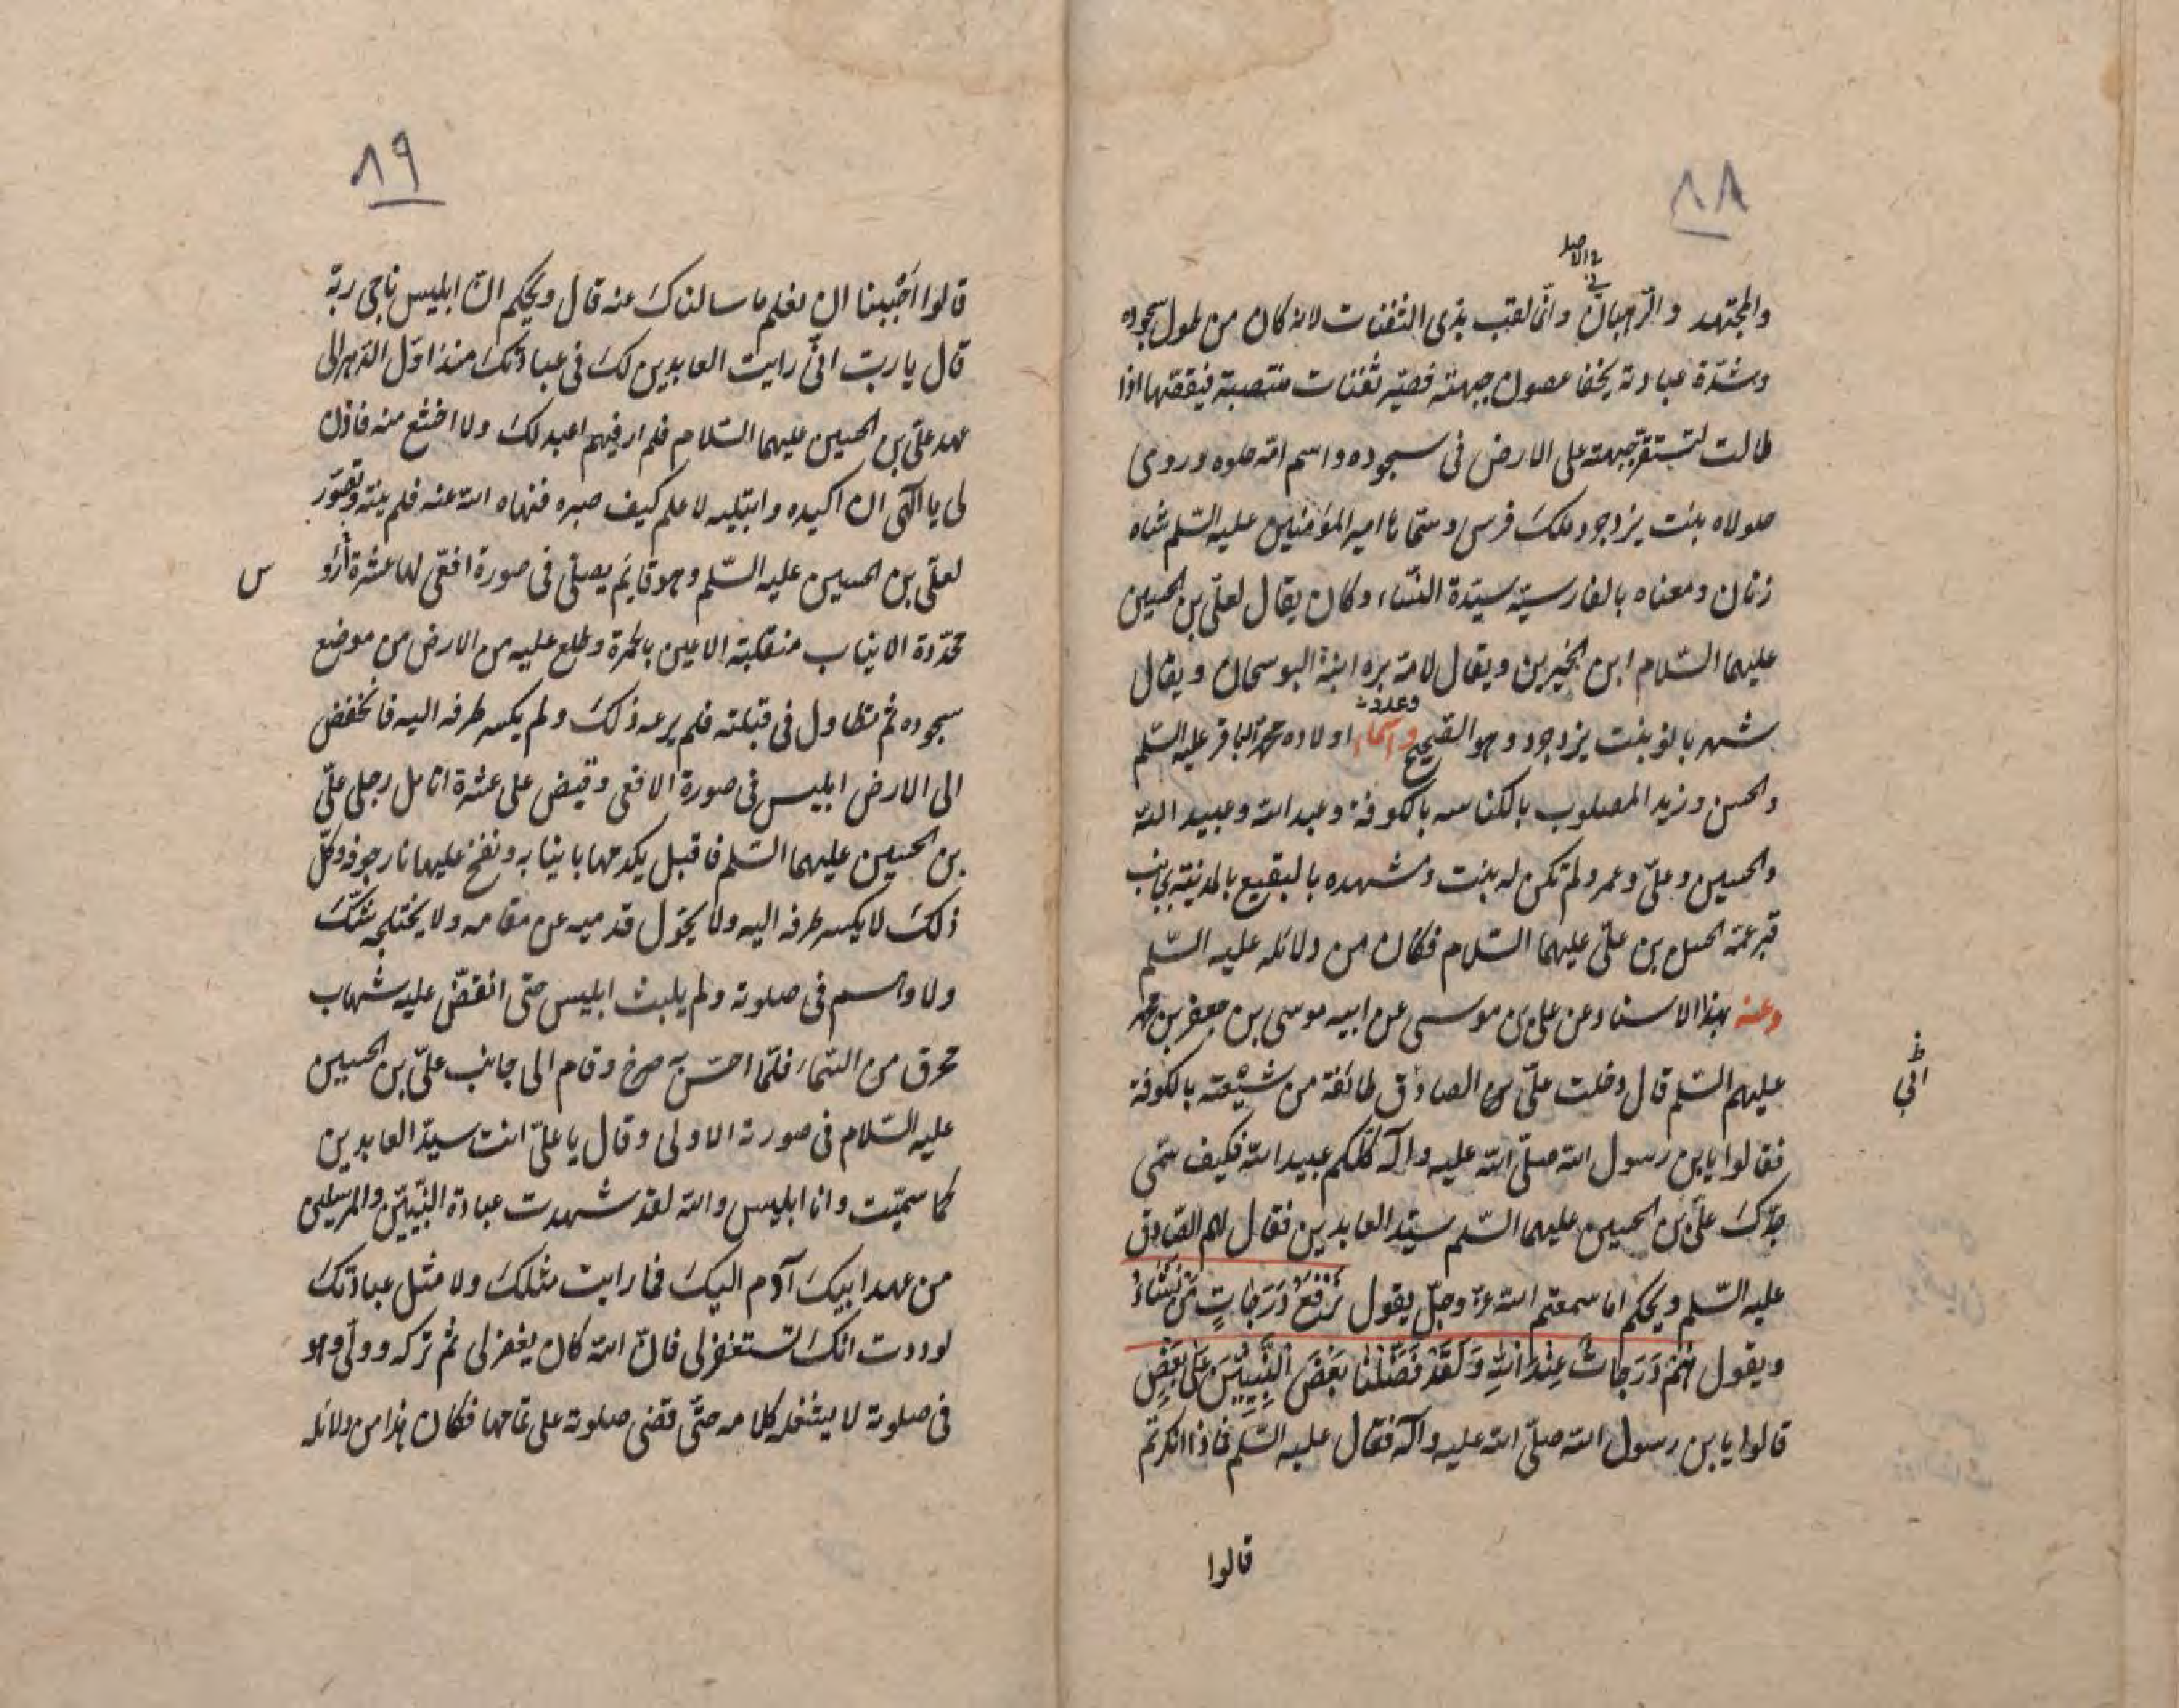 ٨٨
في الاصل
والمجتهد والرهبان وانّما لقب بذى الثفنات لانه كان من طول سجوده
وشدّة عبادته يخفا عصون جبهته فصير ثفنات منتصبة فيقصّها اذا
طالت لتستقرّ جبهته على الارض فى سجوده واسم امّه حلوه وروى
حلولاه بنت يزدجرد ملك فرس وسمّاها امير المؤمنين عليه السّلم شاه
زنان ومعناه بالفارسيّة سيّدة النّساء وكان يقال لعلىّ بن الحسين
عليهما السّلام ابن الخيرين ويقال لامّه بره ابنة البوسحان ويقال
شهربانو بنت يزدجرد وهو الصّحيح واسماء وعدد اولاده محمّد الباقر عليه السّلم
والحسن وزيد المصلوب بالكناسه بالكوفة وعبد الله وعبيد الله
والحسين وعلىّ وعمر ولم تكن له بنت ومشهده بالبقيع بالمدينة بجانب
قبر عمّه الحسن بن علىّ عليهما السّلام فكان من دلائله عليه السّلم
وعنه بهذا الاسناد عن على بن موسى عن ابيه موسى بن جعفر بن محمّد
عليهم السّلم قال دخلت علىّ بن الصادق طائفة من شيعته بالكوفة
فقالوا يابن رسول الله صلّى الله عليه وآله كلّكم عبيد الله فكيف سمّى
جدّك علىّ بن الحسين عليهما السّلم سيّد العابدين فقال لهم الصّادق
عليه السّلم ويحكم اما سمعتم الله عزّ وجلّ يقول نَرْفَعُ دَرَجَاتٍ مَنْ نَشَاءُ
ويقول هُمْ دَرَجَاتٌ عِنْدَ اللهِ وَلَقَدْ فَضَّلْنَا بَعْضَ النَّبِيِّينَ عَلَى بَعْضٍ
قالوا يابن رسول الله صلّى الله عليه وآله فقال عليه السّلم فماذا انكرتم
قالوا
٨٩
قالوا اَحْبَبنا ان نعلم ما سالناك عنه قال ويحكم انّ ابليس ناجى ربّه
قال يا ربّ انّى رايت العابدين لك فى عبادتك منذ اوّل الدّهر الى
عهد علىّ بن الحسين عليهما السّلام فلم ار فيهم اعبد لك ولا اخشع منه فاذن
لى يا الهى ان اكيده وابتليه لاعلم كيف صبره فنهاه الله عنه فلم ينته وتصوّر
لعلىّ بن الحسين عليه السّلم وهو قايم يصلّى فى صورة افعى لها عشرة ارؤ
س
محدّدة الانياب منقلبة الاعين بالحمرة وطلع عليه من الارض من موضع
سجوده ثم تطاول فى قبلته فلم يرعه ذلك ولم يكسر طرفه اليه فانخفض
الى الارض ابليس فى صورة الافعى وقبض على عشرة انامل رجلى علىّ
بن الحسين عليهما السّلم فاقبل يكدمها بانيابه ونفخ عليها نار جوفه وكلّ
ذلك لا يكسر طرفه اليه ولا يحوّل قدميه عن مقامه ولا يختلجه شكّ
ولا وهم فى صلوته ولم يلبث ابليس حتّى انقضّ عليه شهاب
محرق من السّماء فلمّا احسّ به صرخ وقام الى جانب علىّ بن الحسين
عليه السّلام فى صورته الاولى وقال يا علىّ انت سيّد العابدين
كما سمّيت وانا ابليس والله لقد شهدت عبادة النّبيّين والمرسلين
من عهد ابيك آدم اليك فما رايت مثلك ولا مثل عبادتك
لوددت انّك تستغفر لى فانّ الله كان يغفر لى ثم تركه وولّى وهو
فى صلوته لا يشغله كلامه حتّى قضى صلوته على تمامها فكان هذا من دلائله